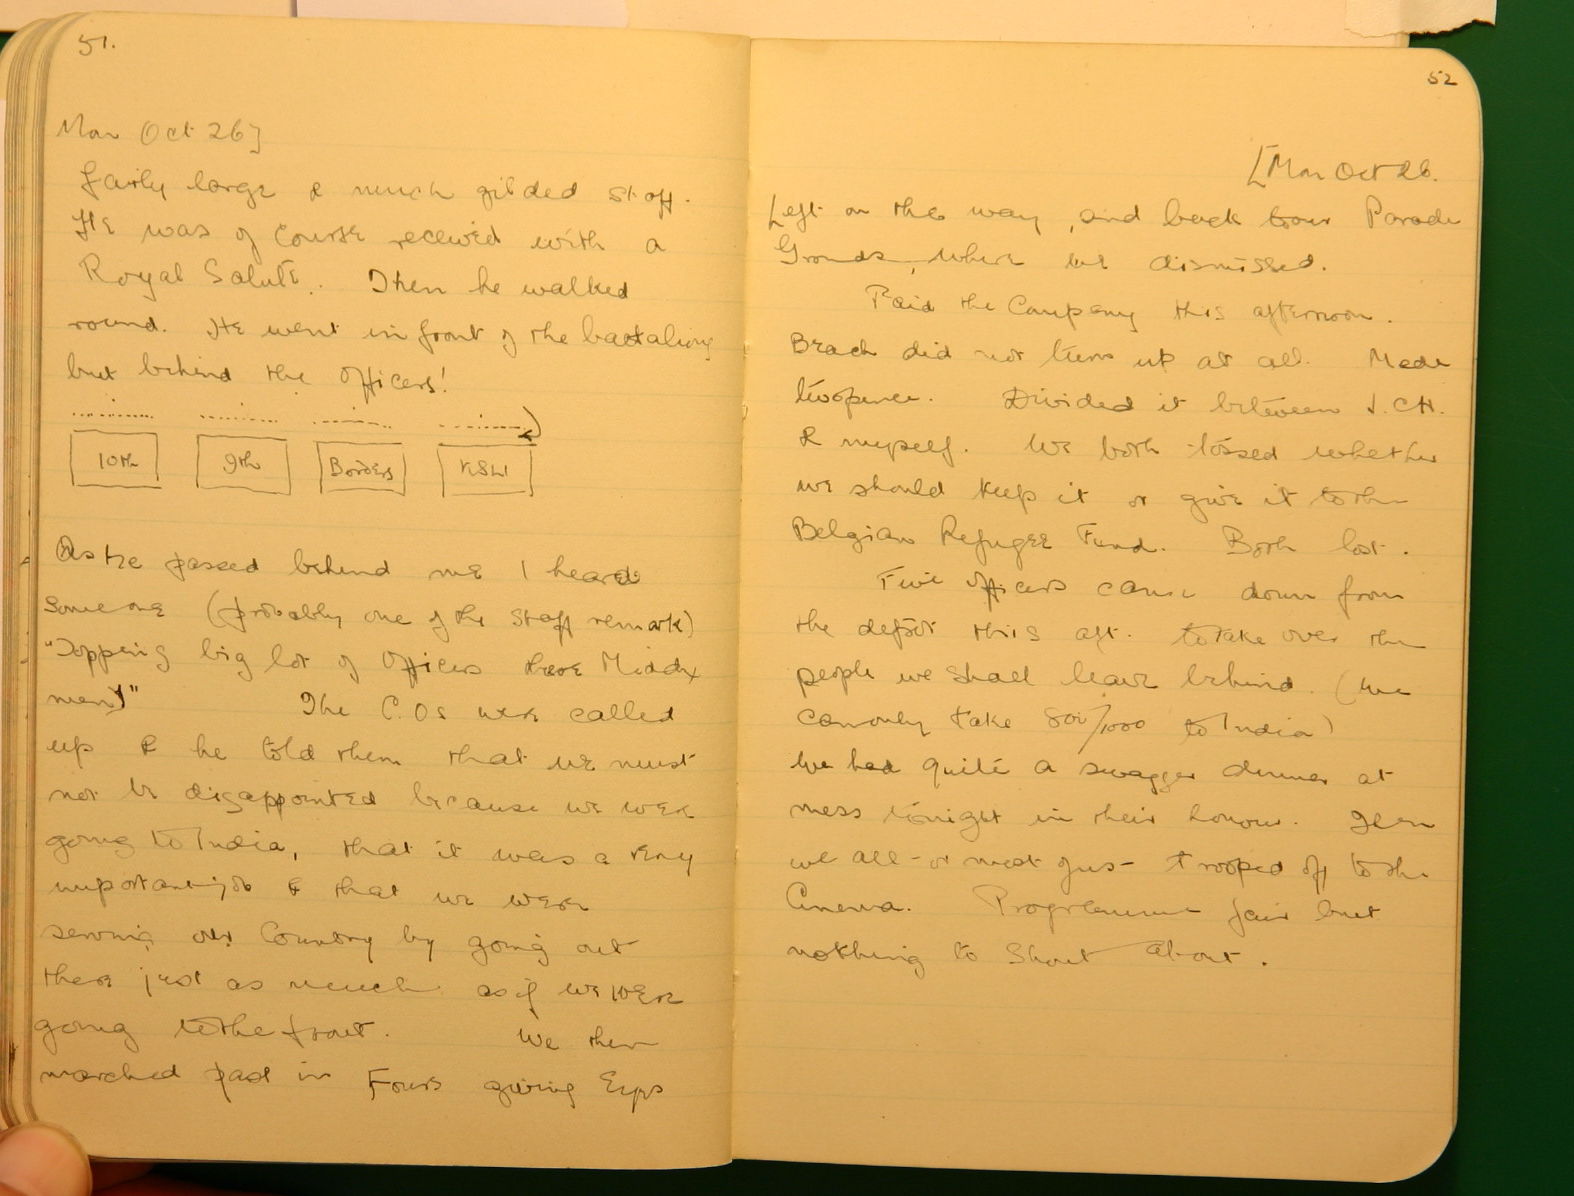 51.
Mon Oct 26]
fairly large & much gilded staff.
He was of course received with a
Royal Salute. Then he walked
round. He went in front of the battalions
but behind the officers!
10th 9th Borders KSLI
As he passed behind me I heard
someone (probably one of the Staff remark)
"Topping big lot of officers these Middx
men)" The C.Os were called
up & he told them that we must
not be disappointed because we were
going to India, that it was a very
important job & that we were
serving our Country by going out
there just as much as if we were
going to the front. We then
marched past in Fours giving Eyes
52
[Mon Oct 26.
Left on the way, and back to our Parade
Grounds, where we dismissed.
Paid the Company this afternoon.
Beach did not turn up at all. Made
twopence. Divided it between J.C.H.
& myself. We both tossed whether
we should keep it or give it to the
Belgian Refugee Fund. Both lost.
Five officers came down from
the depôt this aft. to take over the
people we shall leave behind. (We
can only take 800/1000 to India)
We had quite a swagger dinner at
mess tonight in their honour. Then
we all - or most of us - trooped off to the
Cinema. Programme fair but
nothing to shout about.